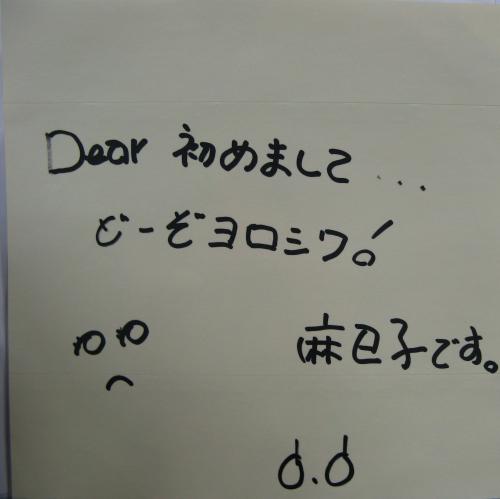 Dear 初めまして...
どーぞヨロシク!
麻巳子です。